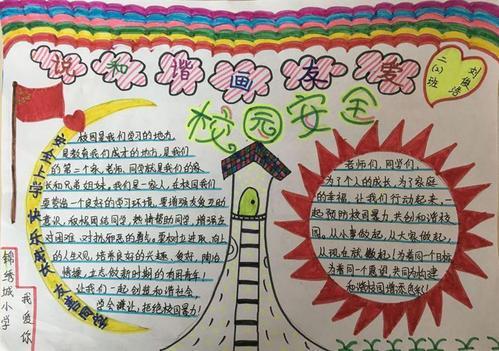 说和谐画友善
二(2)班
刘俊浩
校园安全
安全上学 快乐成长
校园是我们学习的地方,
是教育我们成才的地方,是我们
的第二个家,老师、同学就是我们的家
长和兄弟姐妹,我们是一家人,在校园我们
要营造一个良好的学习环境,要增强
意识,积极团结同学,热情帮助同学,增强在
对困难、对挫折的勇气,要树立进取向上
的人生观,培养良好的兴趣、爱好、陶冶
情操,立志做新时期的有用青年!
让我们一起创造和谐社会,
学会谦让,拒绝校园暴力!
老师们,同学们,
为了个人的成长,为了家庭
的幸福,让我们行动起来,一
起预防校园暴力共创和谐校
园,从小事做起,从大家做起,
从现在就做起!为着同一个目标
为着同一个愿望共同为构建
和谐校园增添色彩!
锦绣城小学
我爱你